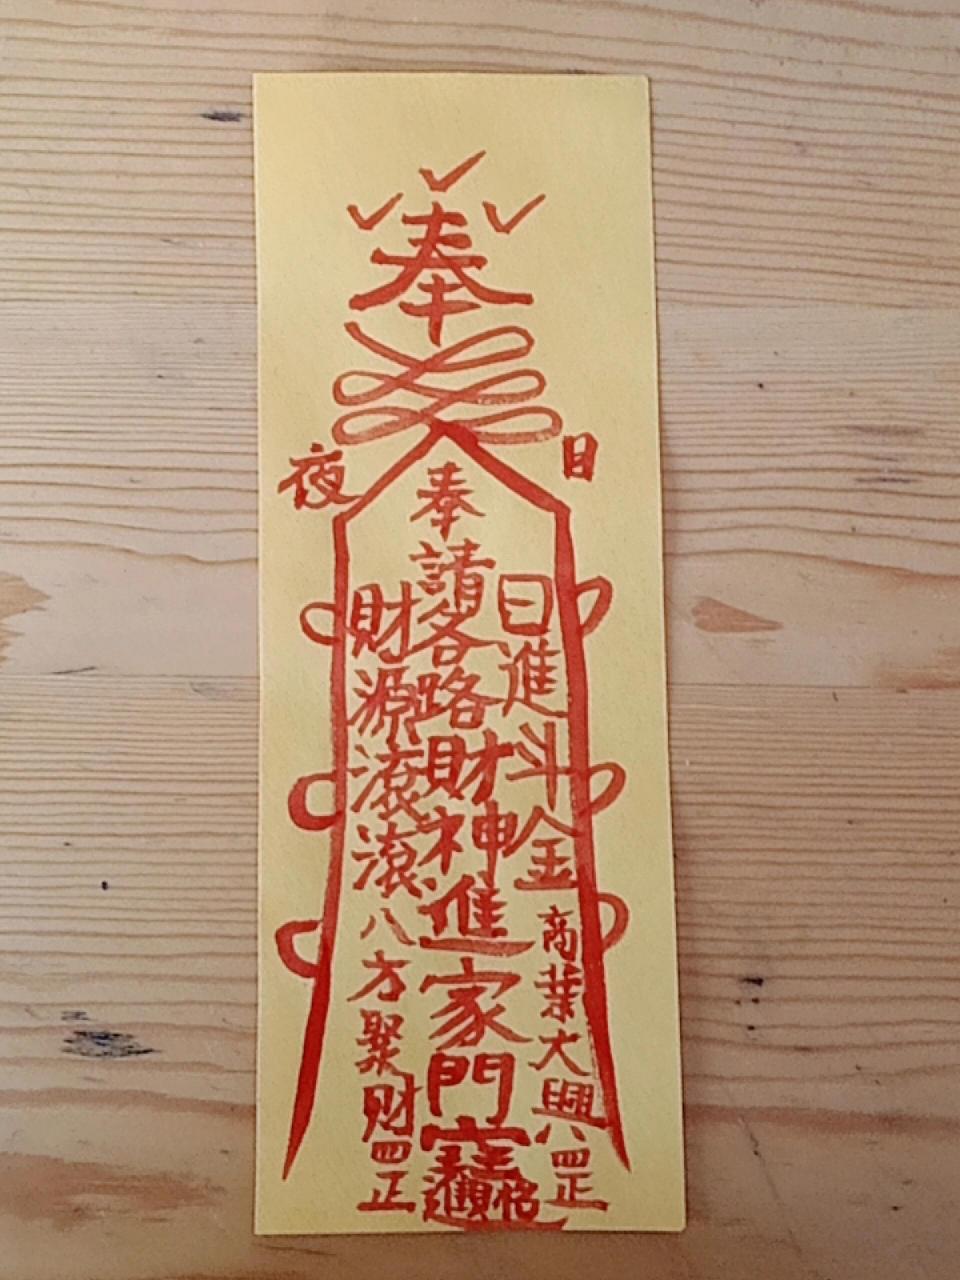 奉
日
夜
日進斗金
商業大興
八罡
奉請各路財神進家門
財源滾滾
八方聚财
罡